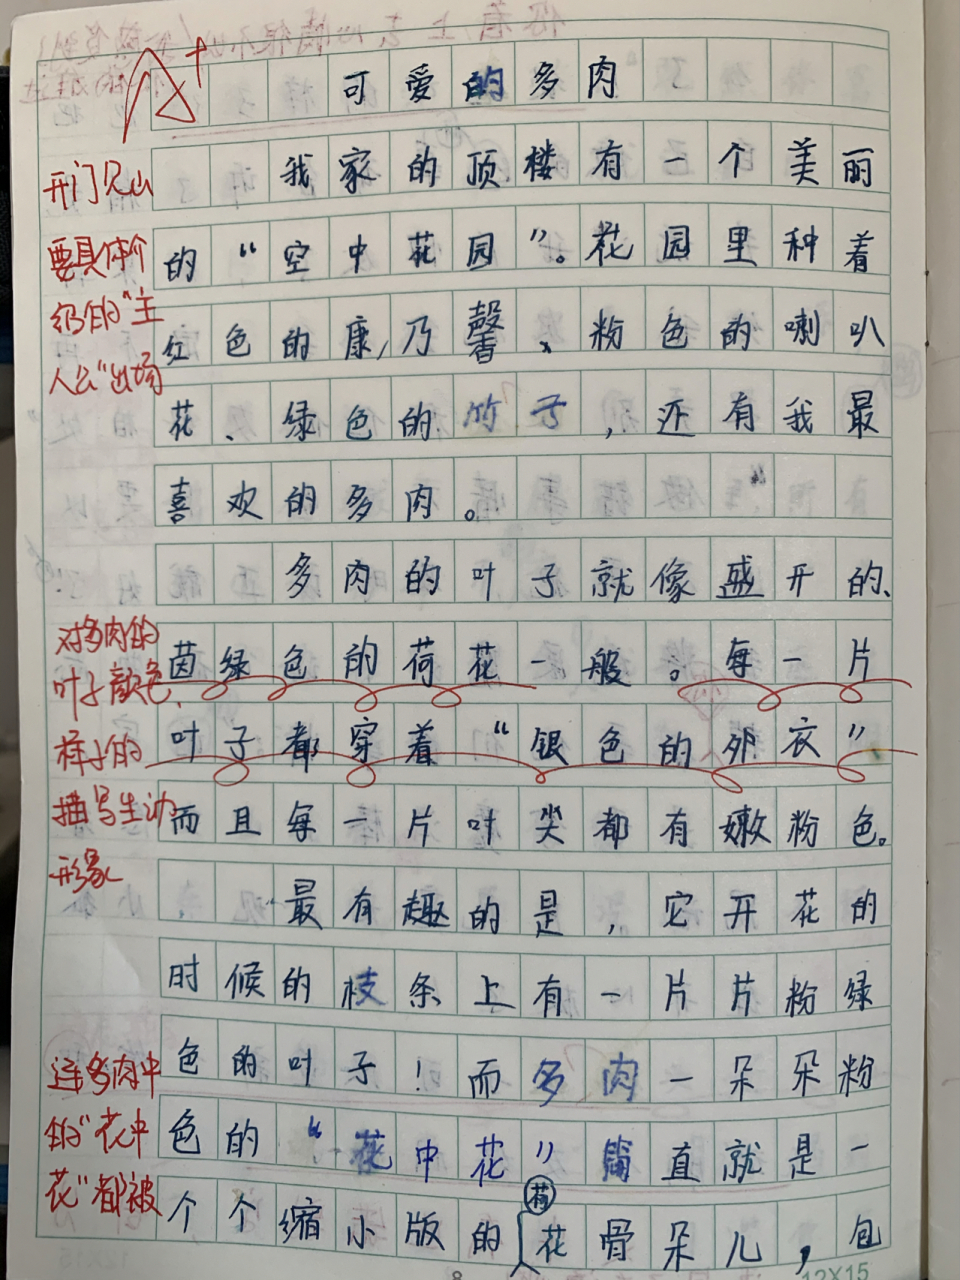 A+
可爱的多肉
我家的顶楼有一个美丽
的“空中花园”。花园里种着
红色的康乃馨、粉色的喇叭
花、绿色的竹子，还有我最
喜欢的多肉。
多肉的叶子就像盛开的、
茵绿色的荷花一般。每一片
叶子都穿着“银色的外衣”
而且每一片叶尖都有嫩粉色。
最有趣的是，它开花的
时候的枝条上有一片片粉绿
色的叶子！而多肉一朵朵粉
色的“花中花”简直就是一
个个缩小版的荷花骨朵儿，包
开门见山
要具体介
绍的“主
人公”出场
对多肉的
叶子颜色、
样子的
描写生动
形象
连多肉中
的“花中
花”都被
8
12X15